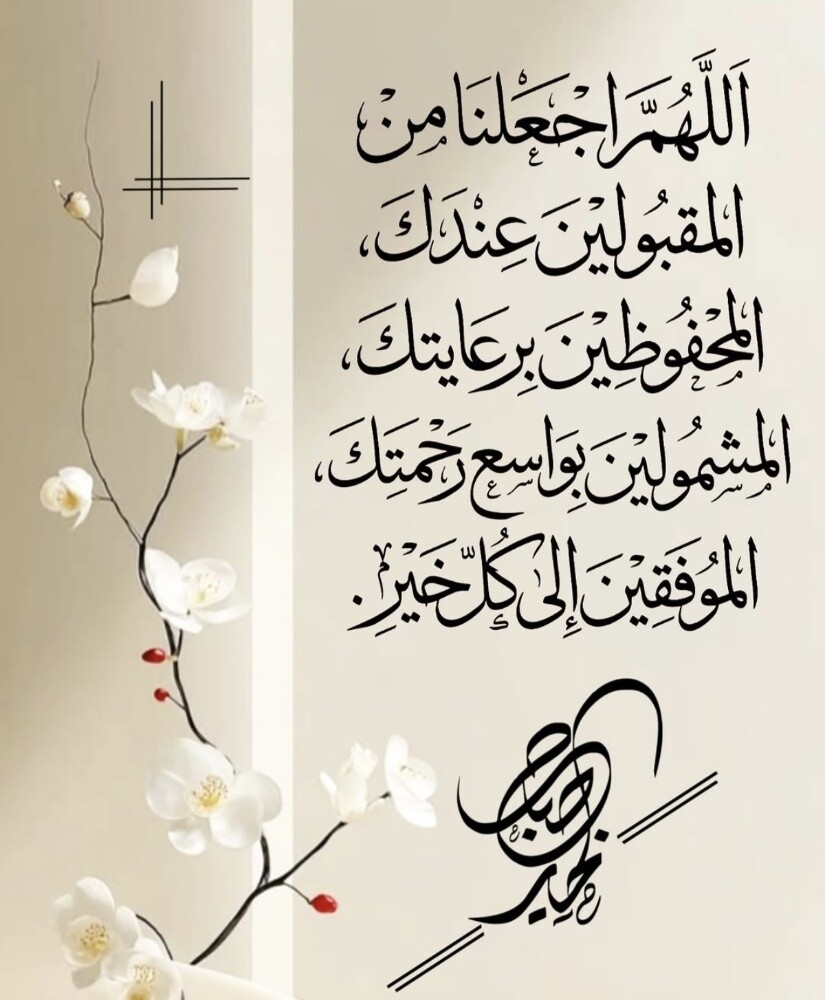 اَللَّهُمَّ اجْعَلنَا مِنْ
المقبُولينَ عِنْدَكَ،
المحْفُوظِينَ بِرعَايتكَ،
المشمُولينَ بِوَاسعِ رَحْمَتِكَ،
الموُفَقِينَ إِلىٰ كُلِّ خَيْرٍ.
صباح
الخير